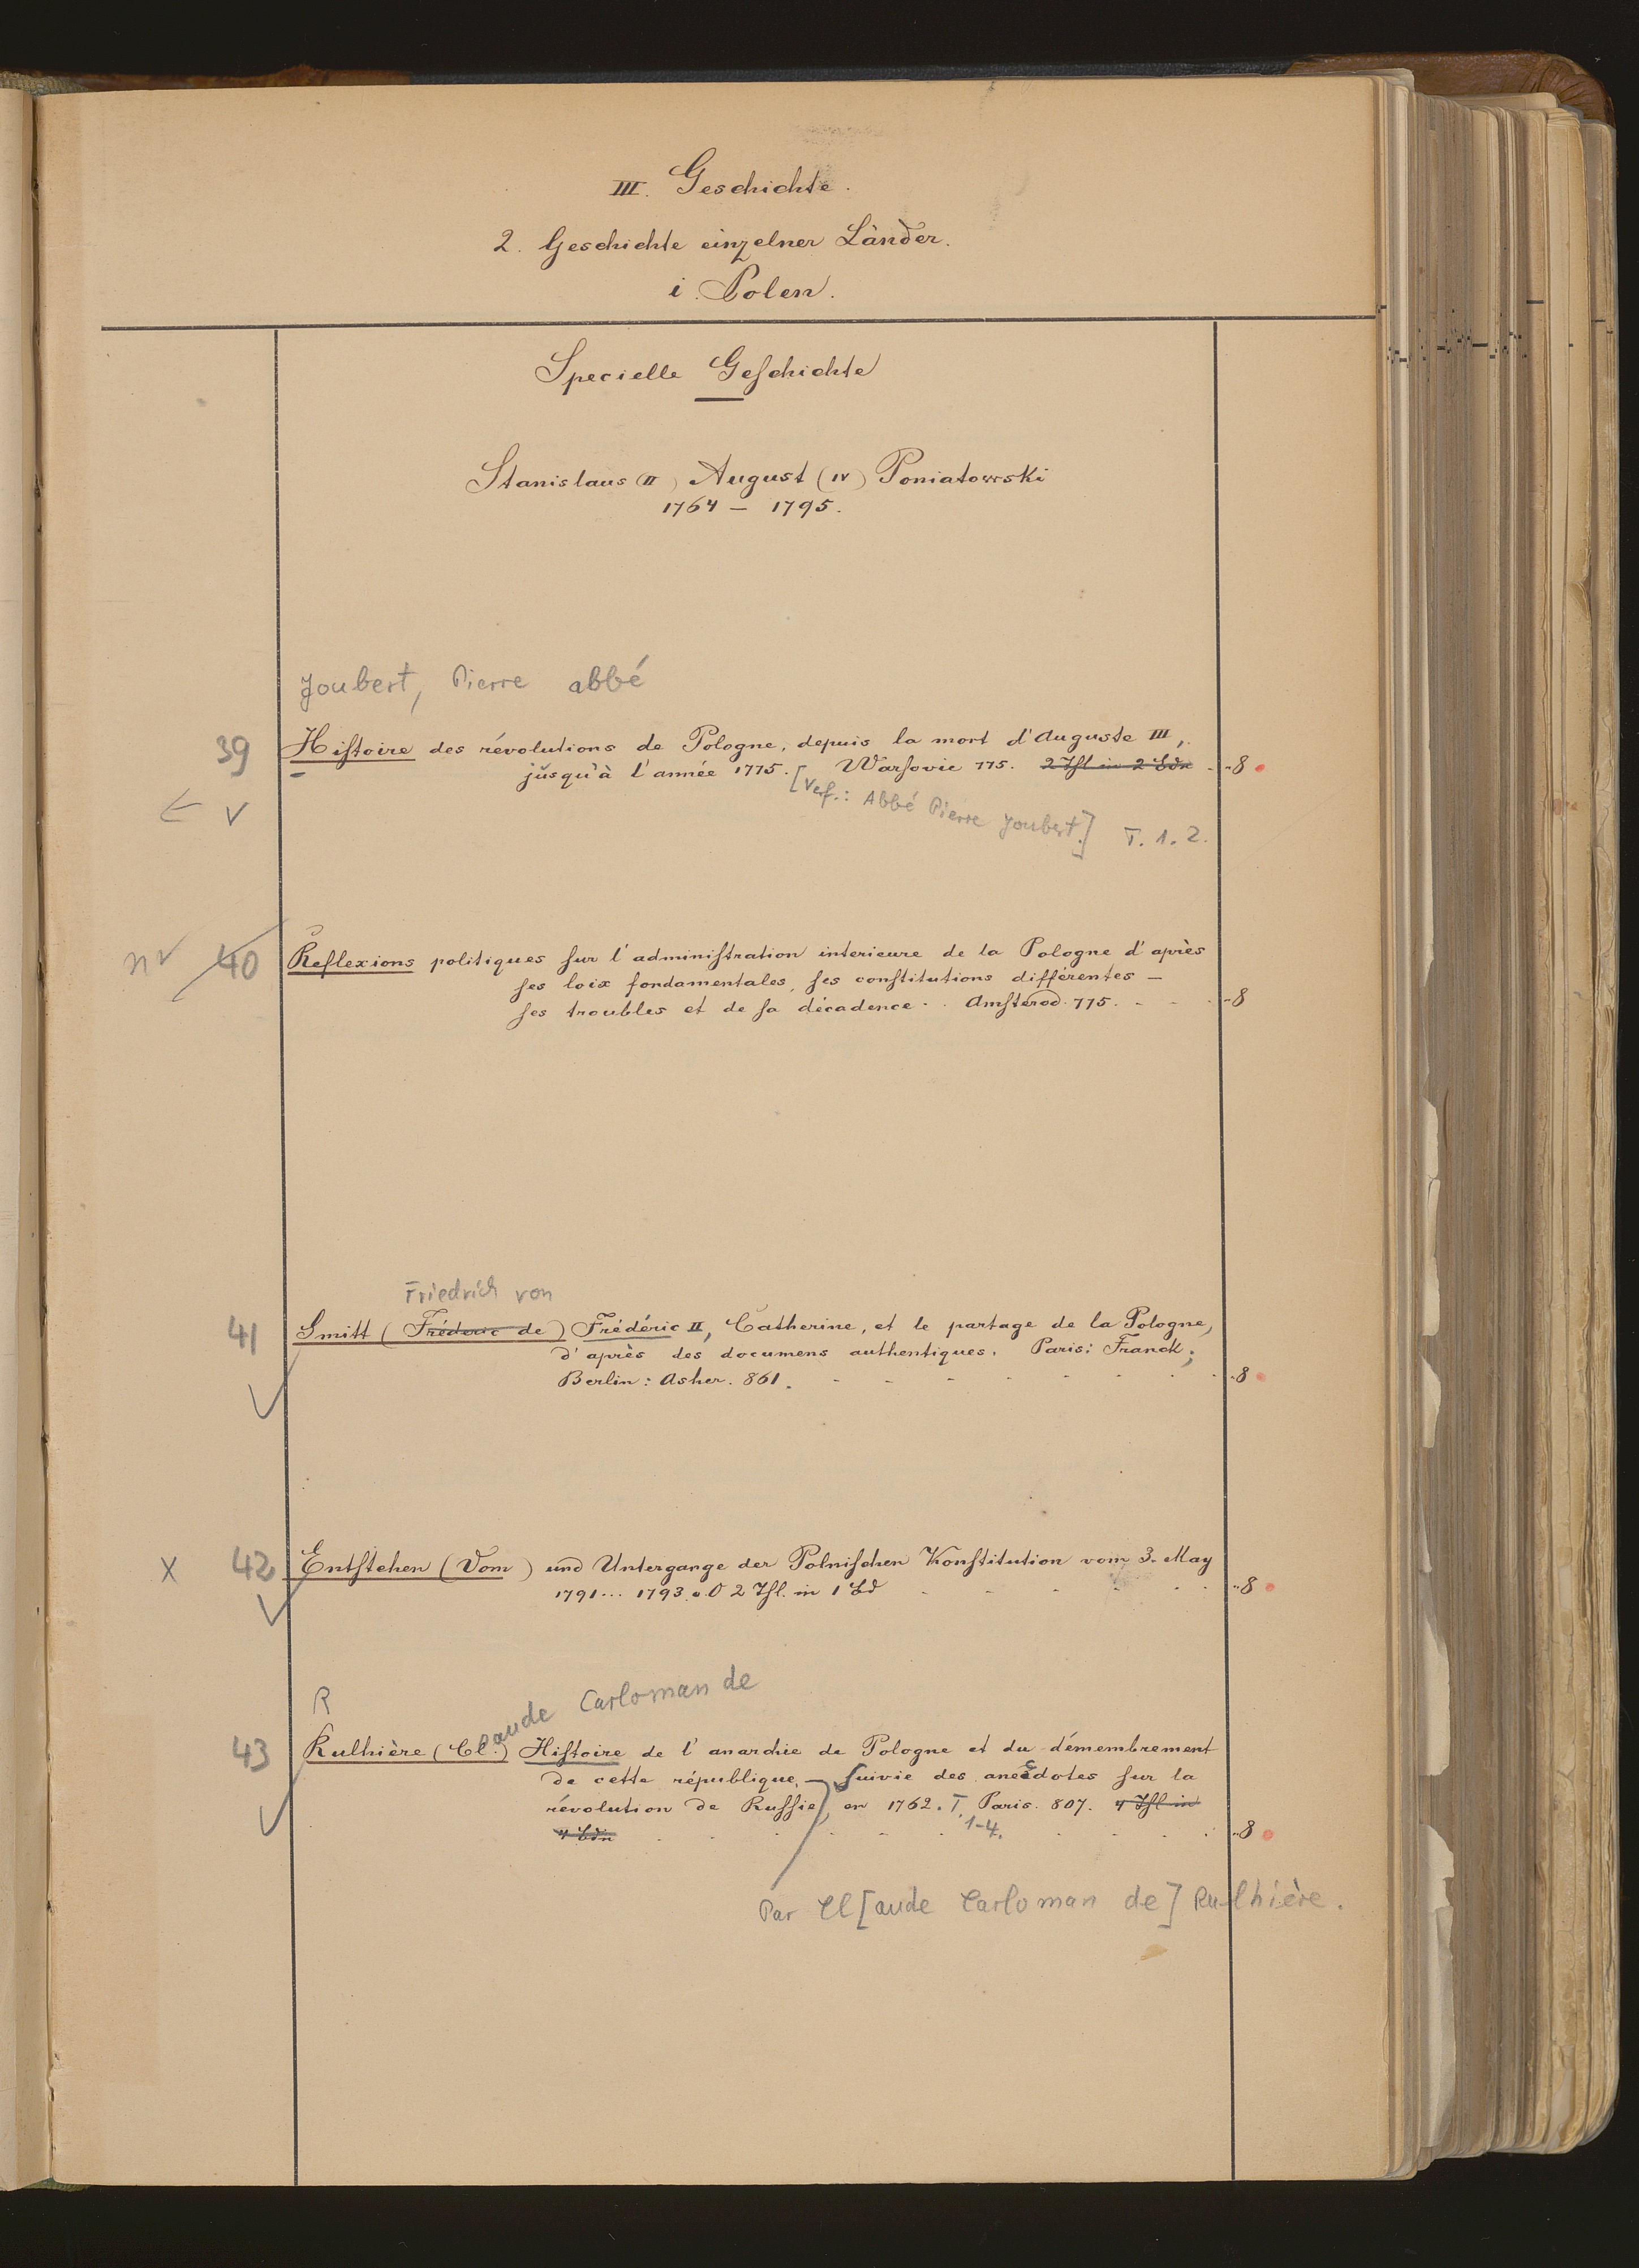 III. Geschichte.
2. Geschichte einzelner Länder.
i. Polen.
Specielle Geschichte
Stanislaus (II) August (IV) Poniatowski
1764 — 1795.
Joubert, Pierre abbé
39 Histoire des révolutions de Pologne, depuis la mort d'Auguste III,
jusqu'à l'année 1775. Warsovie 775. 2 Thl in 2 Bdn - -8
[Verf.: Abbé Pierre Joubert.] T. 1. 2.
← v
nv 40 Reflexions politiques sur l'administration interieure de la Pologne d'après
ses loix fondamentales, ses constitutions différentes —
ses troubles et de sa décadence - . Amsterod. 775. - - - -8
Friedrich von
41 Smitt (Fréderic de) Frédéric II, Catherine, et le partage de la Pologne,
d'après des documens authentiques. Paris: Franck;
Berlin: Asher. 861. - - - - - - - -8
x 42 Entstehen (Vom) und Untergange der Polnischen Konstitution vom 3. May
1791... 1793. o.O 2 Thl. in 1 Bd - - - - - -8
R aude Carloman de
43 Rulhière (Cl.) Histoire de l'anarchie de Pologne et du démembrement
de cette république, — suivie des anecdotes sur la
révolution de Russie, en 1762. T. Paris. 807. 4 Thl in
4 Bdn 1-4. -8
Par Cl[aude Carloman de] Rulhière.